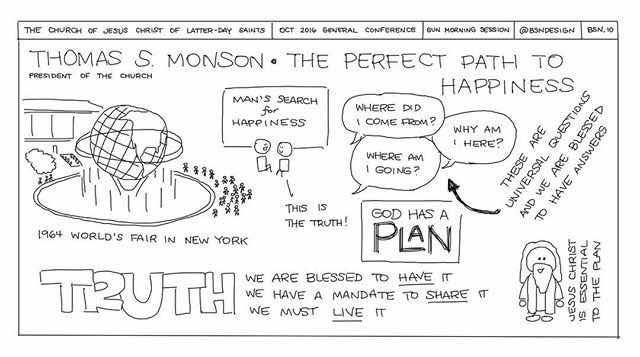 THE CHURCH OF JESUS CHRIST OF LATTER-DAY SAINTS
OCT 2016 GENERAL CONFERENCE
SUN MORNING SESSION
@BSNDESIGN
BSN.10
THOMAS S. MONSON • THE PERFECT PATH TO
HAPPINESS
PRESIDENT OF THE CHURCH
MAN'S SEARCH
for
HAPPINESS
THIS IS
THE TRUTH!
1964 WORLD'S FAIR IN NEW YORK
WHERE DID
I COME FROM?
WHY AM
I HERE?
WHERE AM
I GOING?
THESE ARE
UNIVERSAL QUESTIONS
AND WE ARE BLESSED
TO HAVE ANSWERS
GOD HAS A
PLAN
TRUTH
WE ARE BLESSED TO HAVE IT
WE HAVE A MANDATE TO SHARE IT
WE MUST LIVE IT
JESUS CHRIST
IS ESSENTIAL
TO THE PLAN